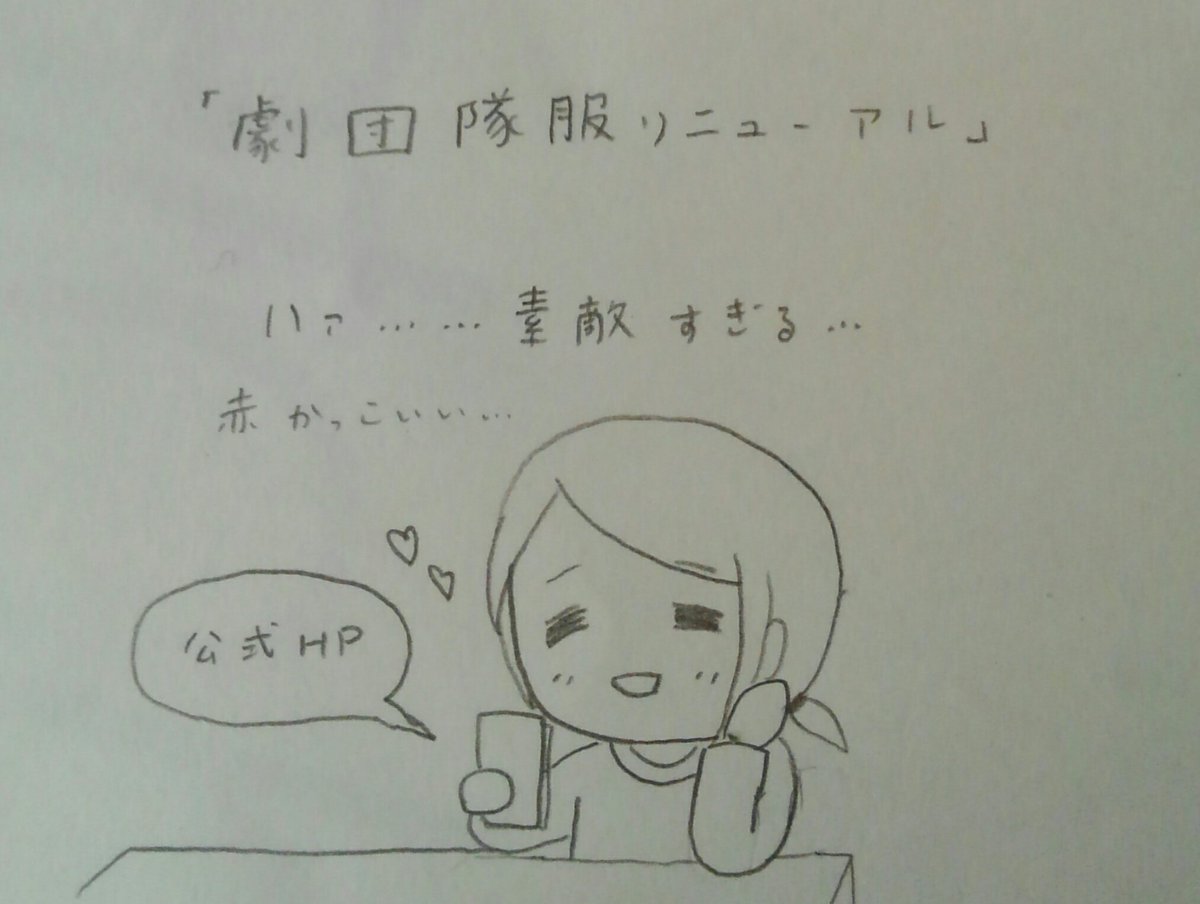 「劇団隊服リニューアル」
ハァ……素敵すぎる…
赤かっこいい…
公式HP